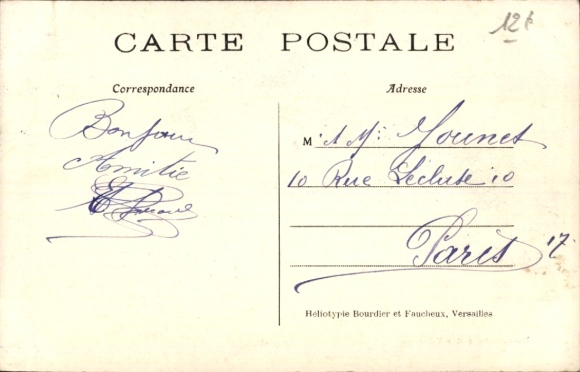 12 F
CARTE POSTALE
Correspondance
Bonjour
Amitié
Adresse
M
10 Rue Lécluse 10
Paris 17
Héliotypie Bourdier et Faucheux, Versailles